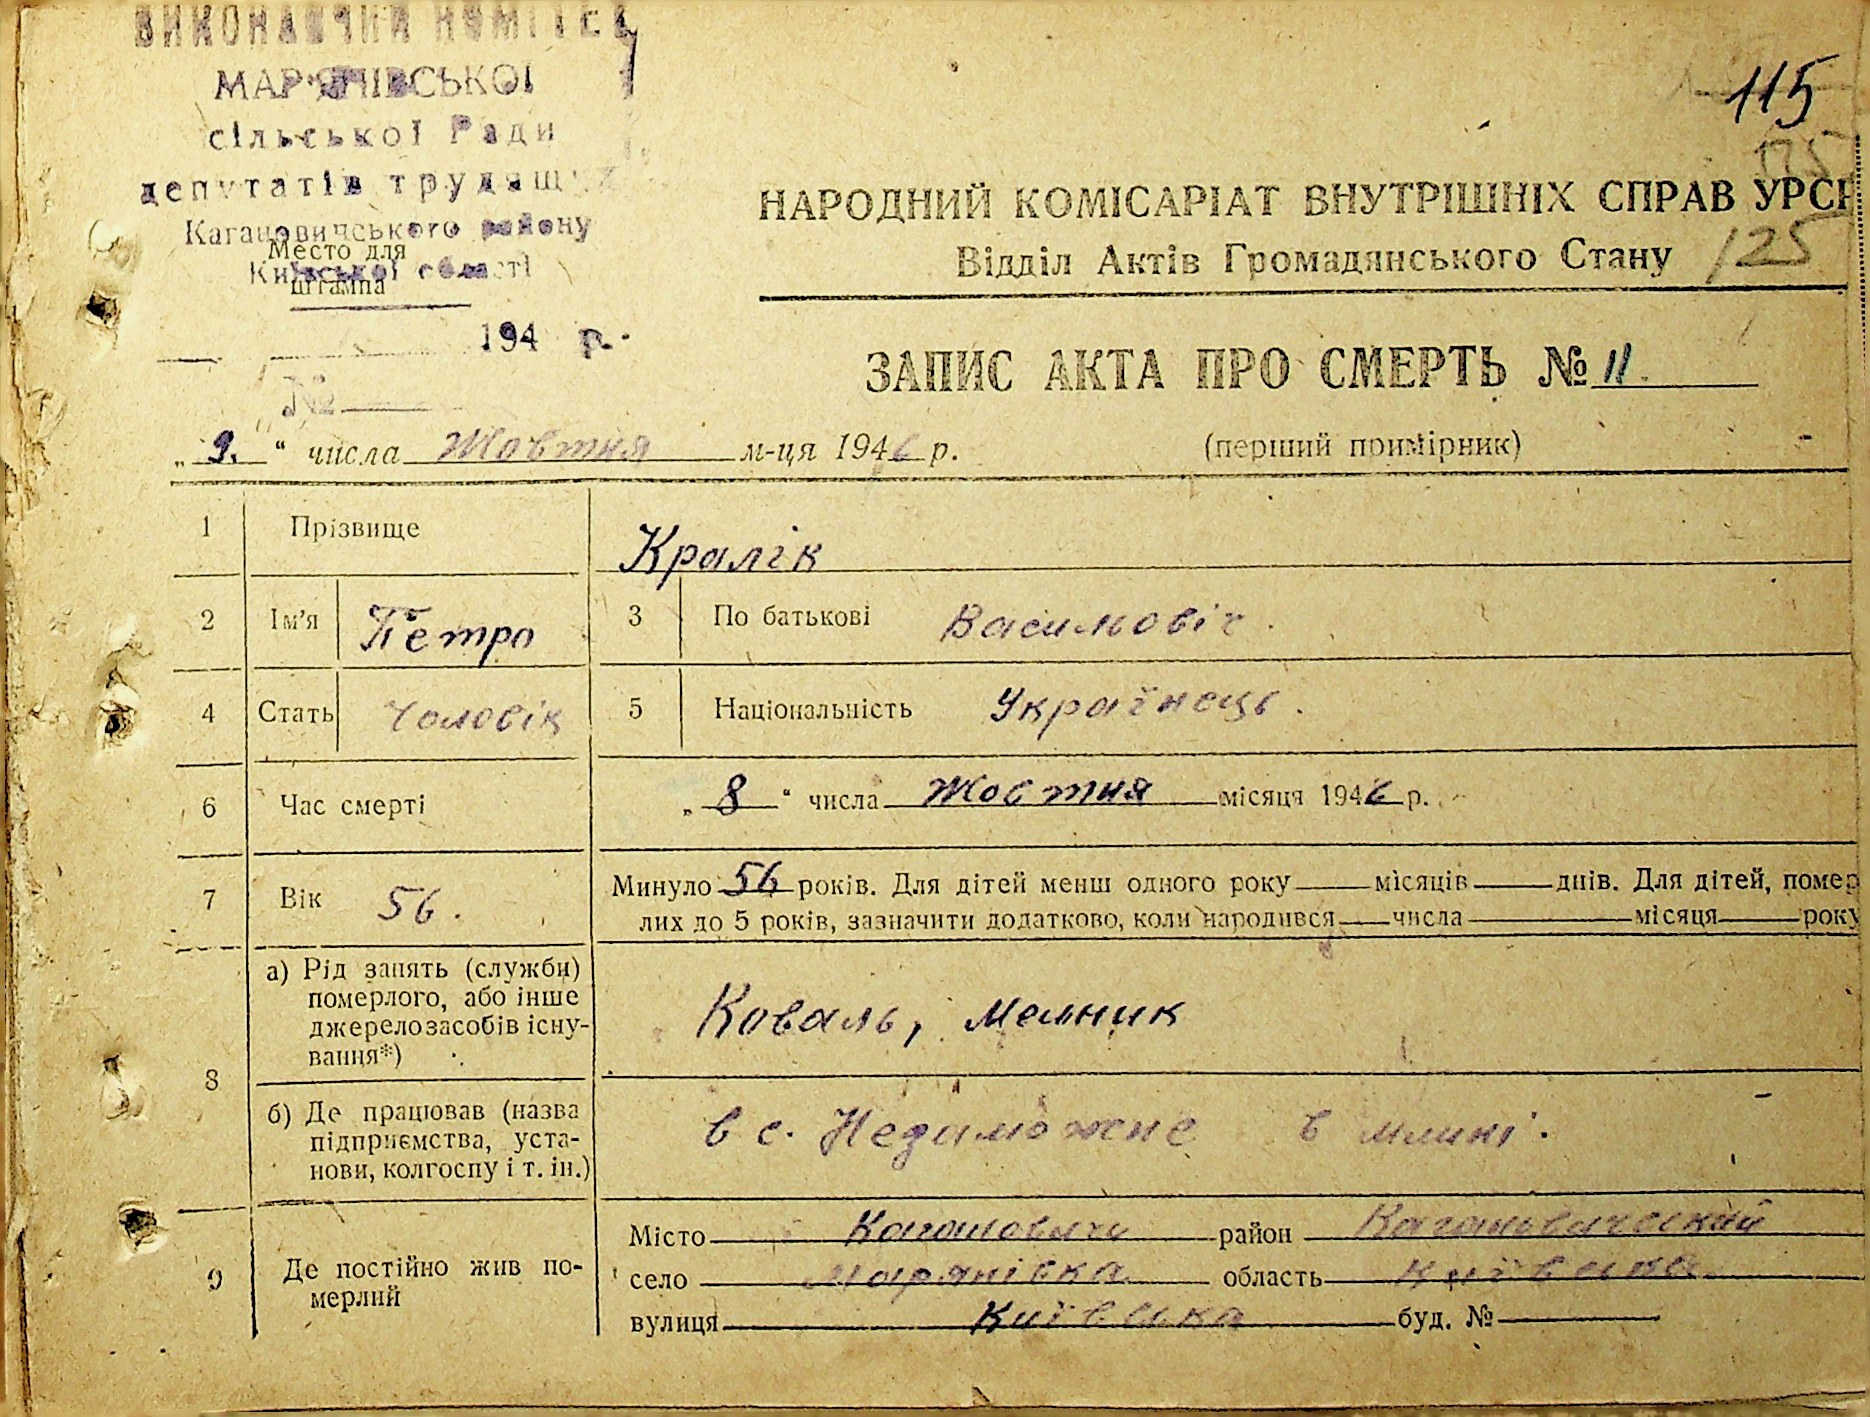 ВИКОНАВЧИЙ КОМІТЕТ
МАР'ЯНІВСЬКОЇ
сільської Ради
депутатів трудящих
Кагановичського району
Київської області
Место для
штампа
194 р.
№
115
125
НАРОДНИЙ КОМІСАРІАТ ВНУТРІШНІХ СПРАВ УРСР
Відділ Актів Громадянського Стану
ЗАПИС АКТА ПРО СМЕРТЬ № 11.
„ 9. “ числа Жовтня м-ця 1946 р. (перший примірник)
1 Прізвище Кралік
2 Ім'я Петро 3 По батькові Васильовіч.
4 Стать Чоловік 5 Національність Українець.
6 Час смерті „ 8 “ числа Жовтня місяця 1946 р.
7 Вік 56. Минуло 56 років. Для дітей менш одного року місяців днів. Для дітей, помер
лих до 5 років, зазначити додатково, коли народився числа місяця року
8 а) Рід занять (служби)
померлого, або інше
джерело засобів існу-
вання*)
Коваль, мельник
б) Де працював (назва
підприємства, уста-
нови, колгоспу і т. ін.)
в с. Недиможне в млині.
9 Де постійно жив по-
мерлий
Місто Кагановичи район Кагановичеський
село Мар'янівка область Київська
вулиця Київська буд. №